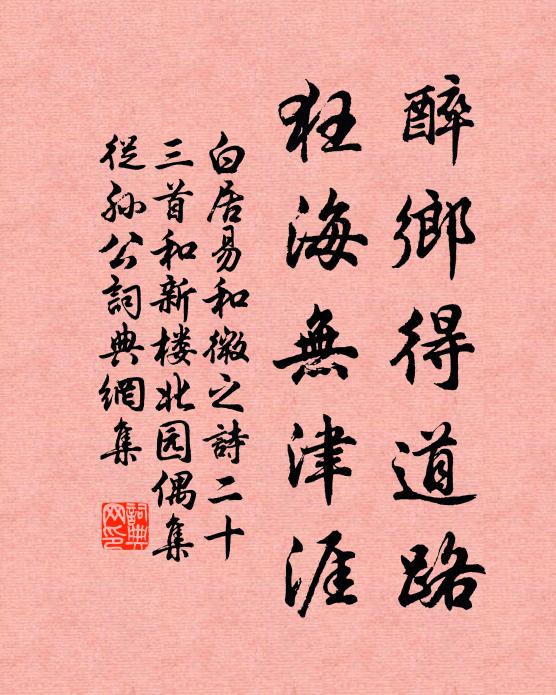 醉鄉得道路
狂海無津涯
白居易和微之詩二十
三首和新楼北园偶集
從孙公詞典網集
詞典
网印